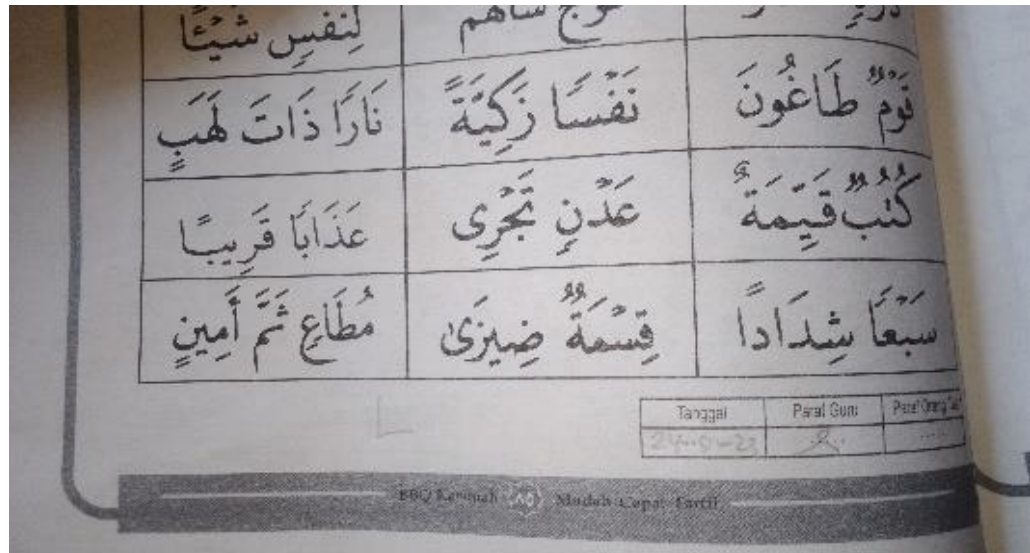 لِنَفْسٍ شَيْئًا
قَوْمٌ طَاغُونَ نَفْسًا زَكِيَّةً نَارًا ذَاتَ لَهَبٍ
كُتُبٌ قَيِّمَةٌ عَدْنٍ تَجْرِى عَذَابًا قَرِيبًا
سَبْعًا شِدَادًا قِسْمَةٌ ضِيزَىٰ مُطَاعٍ ثَمَّ أَمِينٍ
Tanggal Paraf Guru Paraf Orang
BBQ ٨٥ Mudah Cepat Tartil